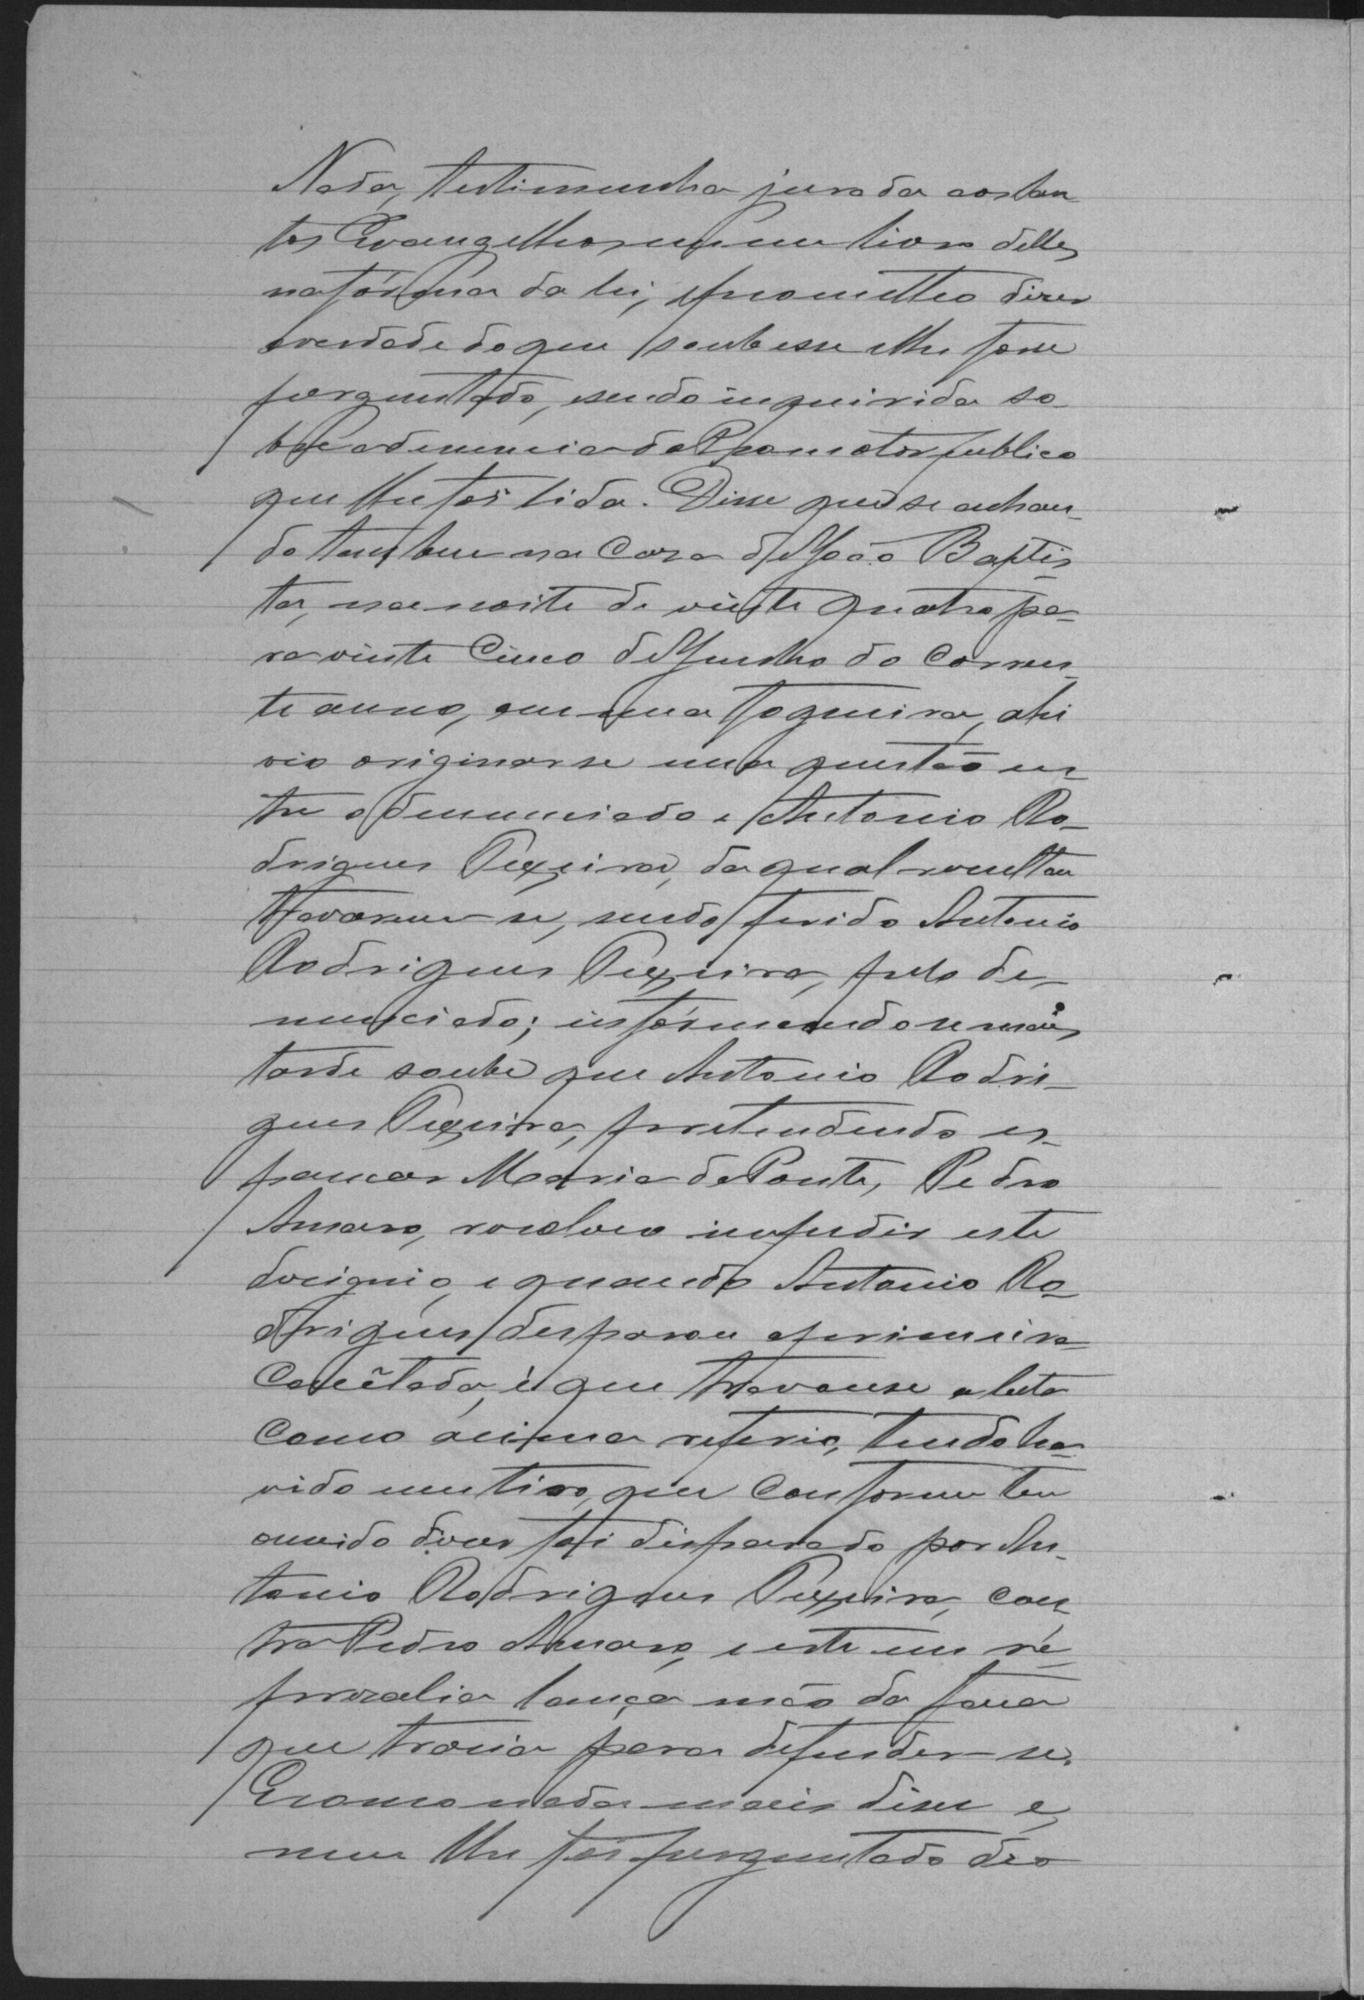 Nada, testimunha jurada aos San
tos Evangelhos em um livro delles
na fórma da lei, e prometteo dizer
a verdade do que soubesse e lhe fosse
perguntado, e sendo inquirida so
bre a denuncia do Promotor publico
que lhe foi lida. Disse que se achan-
do tambem na casa de João Baptis-
ta, na noite de vinte quatro pa-
ra vinte cinco de Junho do corren-
te anno, em uma fogueira, ahi
vio originar-se uma questão en-
tre o denunciado e Antonio Ro-
drigues Teixeira, da qual resultou
travarem-se, sendo ferido Antonio
Rodrigues Teixeira, pelo de-
nunciado; informando-se mais
tarde soube que Antonio Rodri-
gues Teixeira, pretendendo es-
pancar Maria da Ponte, Pedro
Amaro, resolveo impedir este
designio, e quando Antonio Ro-
drigues desparou a primeira
cacêtada, é que travou-se a luta
como acima referio, tendo ha
vido um tiro, que conforme tem
ouvido dizer foi disparado por An-
tonio Rodrigues Teixeira, con-
tra Pedro Amaro, e este em re-
presalia lança mão da faca
que trazia para defender-se.
E como nada mais disse e
nem lhe foi perguntado deo